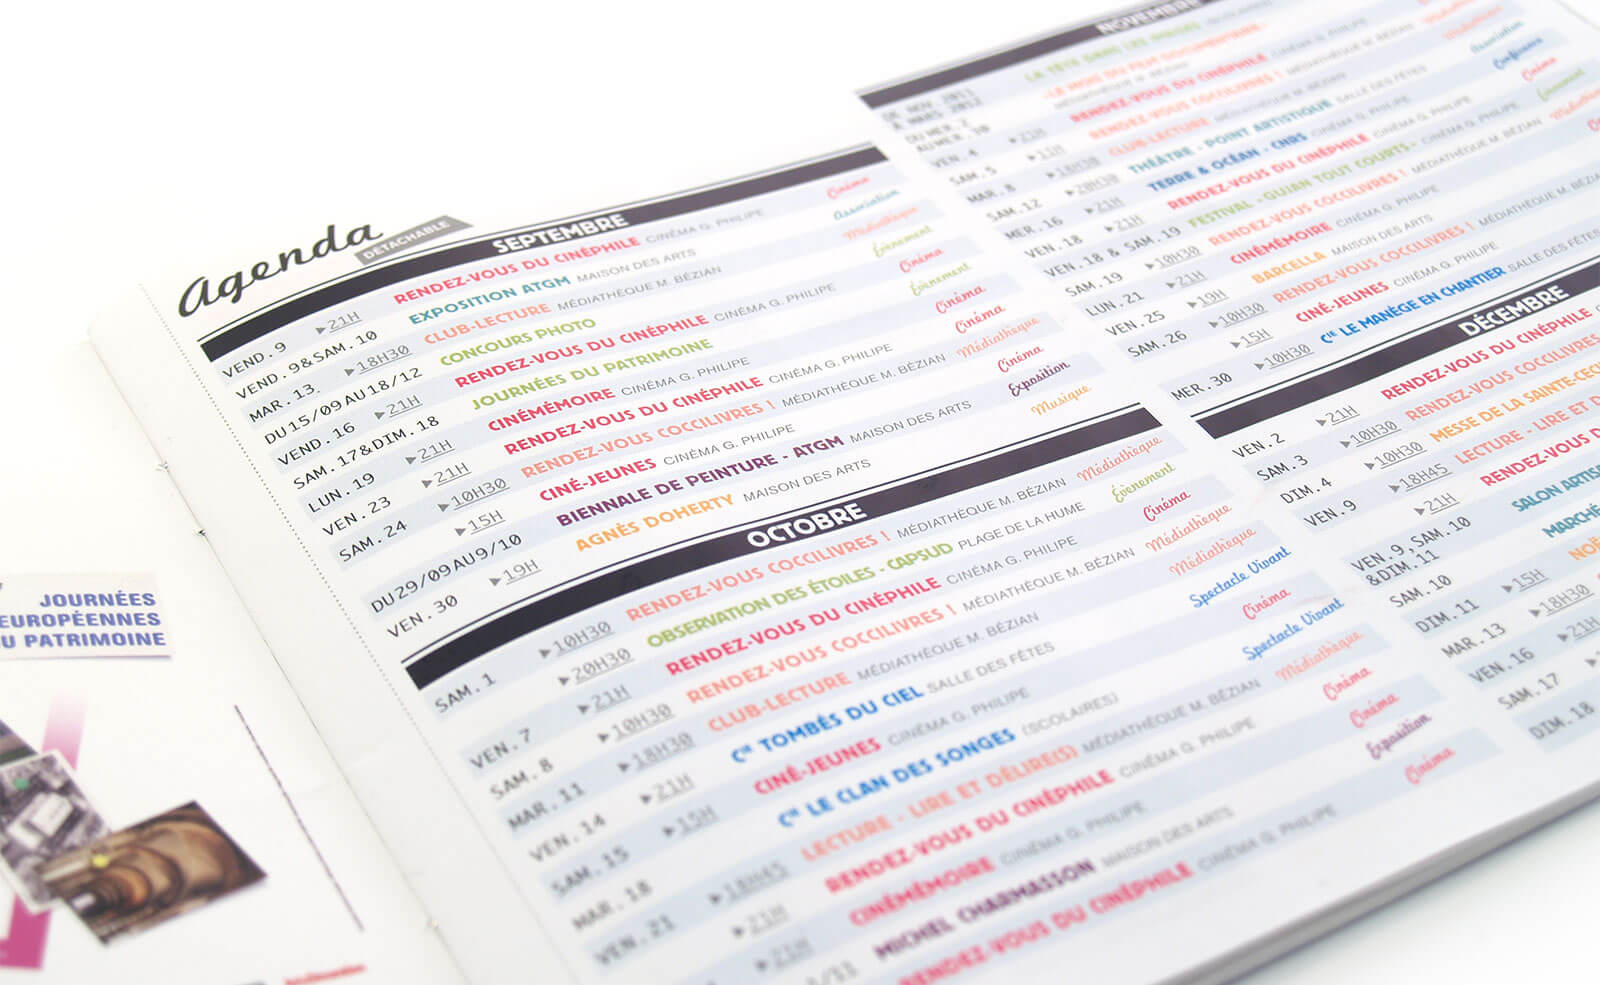 Agenda
DÉTACHABLE
SEPTEMBRE
VEND.9 ▶21H RENDEZ-VOUS DU CINÉPHILE CINÉMA G. PHILIPE Cinéma
VEND.9&SAM.10 EXPOSITION ATGM MAISON DES ARTS Association
MAR.13 ▶18H30 CLUB-LECTURE MÉDIATHÈQUE M. BÉZIAN Médiathèque
DU15/09 AU18/12 CONCOURS PHOTO Évènement
VEND.16 ▶21H RENDEZ-VOUS DU CINÉPHILE CINÉMA G. PHILIPE Cinéma
SAM.17&DIM.18 JOURNÉES DU PATRIMOINE Évènement
LUN.19 ▶21H CINÉMÉMOIRE CINÉMA G. PHILIPE Cinéma
VEN.23 ▶21H RENDEZ-VOUS DU CINÉPHILE CINÉMA G. PHILIPE Cinéma
SAM.24 ▶10H30 RENDEZ-VOUS COCCILIVRES ! MÉDIATHÈQUE M. BÉZIAN Médiathèque
▶15H CINÉ-JEUNES CINÉMA G. PHILIPE Cinéma
DU29/09 AU9/10 BIENNALE DE PEINTURE - ATGM MAISON DES ARTS Exposition
VEN.30 ▶19H AGNÈS DOHERTY MAISON DES ARTS Musique
OCTOBRE
SAM.1 ▶10H30 RENDEZ-VOUS COCCILIVRES ! MÉDIATHÈQUE M. BÉZIAN Médiathèque
▶20H30 OBSERVATION DES ÉTOILES - CAPSUD PLAGE DE LA HUME Évènement
VEN.7 ▶21H RENDEZ-VOUS DU CINÉPHILE CINÉMA G. PHILIPE Cinéma
SAM.8 ▶10H30 RENDEZ-VOUS COCCILIVRES ! MÉDIATHÈQUE M. BÉZIAN Médiathèque
MAR.11 ▶18H30 CLUB-LECTURE MÉDIATHÈQUE M. BÉZIAN Médiathèque
VEN.14 ▶21H Cie TOMBÉS DU CIEL SALLE DES FÊTES Spectacle Vivant
SAM.15 ▶15H CINÉ-JEUNES CINÉMA G. PHILIPE Cinéma
MAR.18 Cie LE CLAN DES SONGES (SCOLAIRES) Spectacle Vivant
VEN.21 ▶18H45 LECTURE - LIRE ET DÉLIRE(S) MÉDIATHÈQUE M. BÉZIAN Médiathèque
▶21H RENDEZ-VOUS DU CINÉPHILE CINÉMA G. PHILIPE Cinéma
▶21H CINÉMÉMOIRE CINÉMA G. PHILIPE Cinéma
/11 MICHEL CHARMASSON MAISON DES ARTS Exposition
RENDEZ-VOUS DU CINÉPHILE CINÉMA G. PHILIPE Cinéma
NOVEMBRE
DE NOV.2011 À MARS 2012 LA TÊTE DANS LES
DU MER.2 AU MER.30 -LE MOIS DU FILM DOCUMENTAIRE- MÉDIATHÈQUE M. BÉZIAN
VEN.4 ▶21H RENDEZ-VOUS DU CINÉPHILE CINÉMA G. PHILIPE
SAM.5 ▶11H RENDEZ-VOUS COCCILIVRES ! MÉDIATHÈQUE M. BÉZIAN
MAR.8 ▶18H30 CLUB-LECTURE MÉDIATHÈQUE M. BÉZIAN
SAM.12 ▶20H30 THÉÂTRE - POINT ARTISTIQUE SALLE DES FÊTES Association
MER.16 ▶21H TERRE & OCÉAN - CNRS CINÉMA G. PHILIPE Conférence
VEN.18 ▶21H RENDEZ-VOUS DU CINÉPHILE CINÉMA G. PHILIPE Cinéma
VEN.18 & SAM.19 FESTIVAL - GUJAN TOUT COURTS - CINÉMA G. PHILIPE Évènement
SAM.19 ▶10H30 RENDEZ-VOUS COCCILIVRES ! MÉDIATHÈQUE M. BÉZIAN
LUN.21 ▶21H CINÉMÉMOIRE CINÉMA G. PHILIPE
VEN.25 ▶19H BARCELLA MAISON DES ARTS
SAM.26 ▶10H30 RENDEZ-VOUS COCCILIVRES ! MÉDIATHÈQUE M. BÉZIA
▶15H CINÉ-JEUNES CINÉMA G. PHILIPE
MER.30 ▶10H30 Cie LE MANÈGE EN CHANTIER SALLE DES FÊTES
DÉCEMBRE
VEN.2 ▶21H RENDEZ-VOUS DU CINÉPHILE
SAM.3 ▶10H30 RENDEZ-VOUS COCCILIVRES
DIM.4 ▶10H30 MESSE DE LA SAINTE-CÉC
VEN.9 ▶18H45 LECTURE - LIRE ET D
▶21H RENDEZ-VOUS D
VEN.9,SAM.10 &DIM.11 SALON ARTIS
SAM.10 MARCHÉ
DIM.11 ▶15H NOË
MAR.13 ▶18H30
VEN.16 ▶21H
SAM.17
DIM.18
JOURNÉES
EUROPÉENNES
U PATRIMOINE